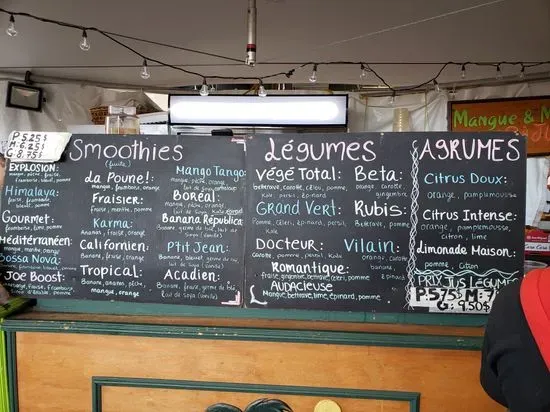 P: 5.25$
M: 6.25$
G: 8.75$
Smoothies
(fruité)
EXPLOSION:
mangue, pêche,
fraise, framboise,
bleuet, pomme
Himalaya:
fraise, framboise,
bleuet, pomme
Gourmet:
framboise, lime,
mangue, pomme
Méditerranéen:
Bossa Nova:
Joe Boost:
da Poune!:
mangue, framboise, orange
Fraisier:
fraise, menthe, pomme
Karma:
ananas, fraise, orange
Californien:
Banane, fraise, orange
Tropical:
Banane, ananas, pêche
mangue, orange
Mango Tango:
mangue, pêche, orange
lait de
Boréal:
lait de soya
Banana Républica:
Banane, germe de blé,
lait de soya (vanille)
P'tit Jean:
Banane, bleuet, germe de blé
lait de soya (vanille)
Acadien:
Banane, fraise, germe de blé
lait de soya (vanille)
Légumes
Végé Total:
betterave, carotte, céleri, pomme
kale, persil, épinard
Grand Vert:
Pomme, céleri, épinard, persil,
Kale
Docteur:
carotte, pomme, persil, Kale
Romantique:
AUDACIEUSE
Mangue, betterave, lime, épinard, pomme
Beta:
orange, carotte,
gingembre
Rubis:
Betterave, orange,
pomme
Vilain:
orange, carotte
banane,
épinard
AGRUMES
Citrus Doux:
orange, pamplemousse
Citrus Intense:
orange, pamplemousse,
citron, lime
Limonade Maison:
pomme, citron
PRIX JUS LÉGUMES
P: 5.75$ M: 7$
G: 9.50$
Mangue & M